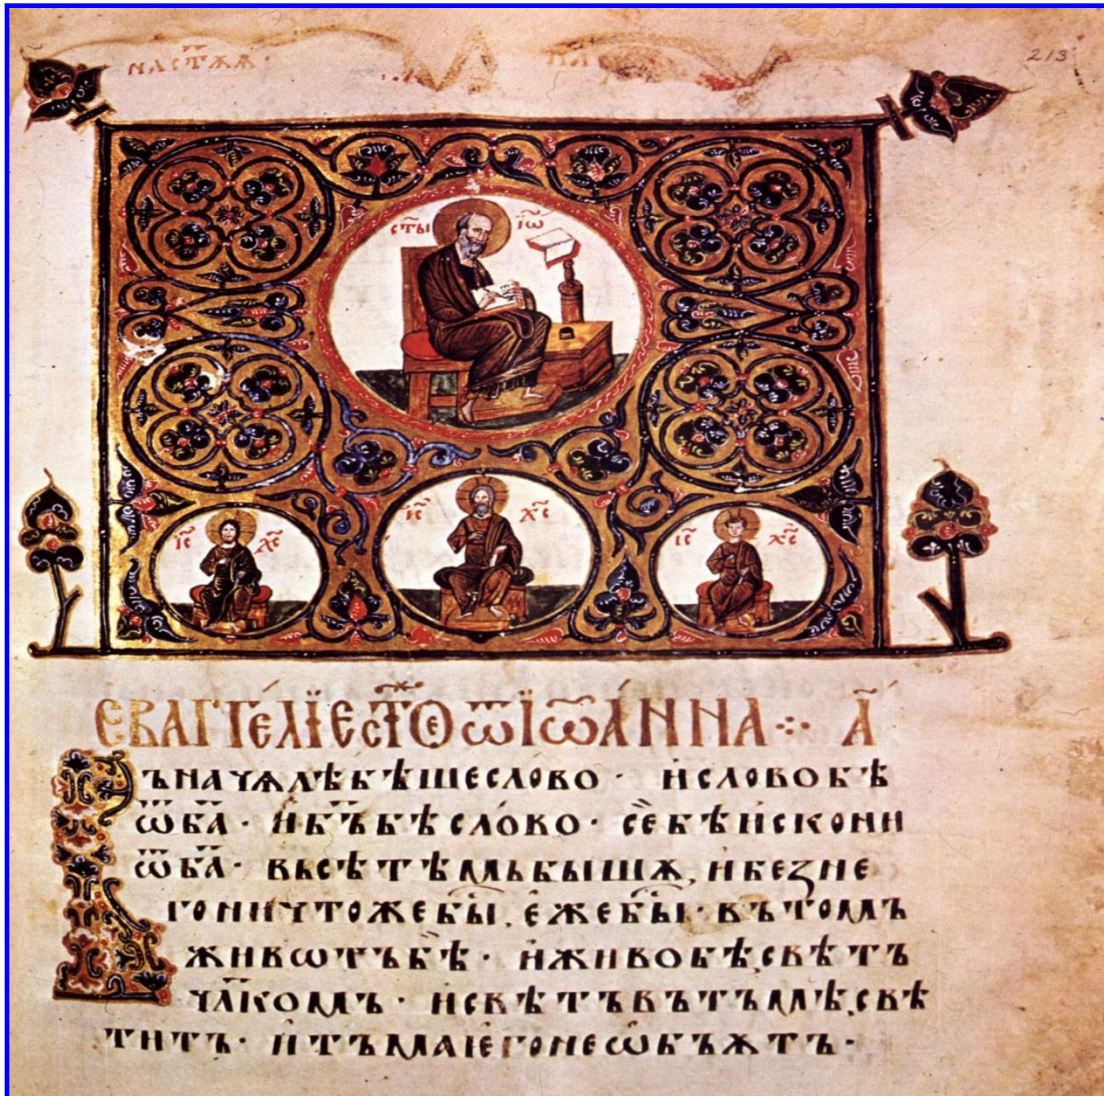 НАСТ҃АѦ ·
213
СТ҃Ы ІѠ
ІС҃ ХС҃
ІС҃ ХС҃ ІС҃ ХС҃
ЄВАГГЕ́ЛЇЕ СТ҃Ѡ Ѿ ІѠА́ННА ⁘ А҃
ВЪНАЧѦЛѢБѢШЕСЛОВО · ИСЛОВОБѢ
Ѿ Б҃А · ИБ҃ЪБѢСЛОВО · СЕБѢИСКОНИ
Ѿ Б҃А · ВЬСѢТѢМЬБЫШѦ, ИБЕЗНЕ
ГОНИЧТОЖЕБЫ̑, ЕЖЕБЫ̑ · ВЪТОМЪ
ЖИВѠТЪБѢ · ИЖИВОБѢ,СВѢТЪ
ЧЛ҃КОМЪ · ИСВѢТЪВЪТЪМѢ,СВѢ
ТИТЪ · ИТЪМАІЕГОНЕѠБЪѪТЪ ·